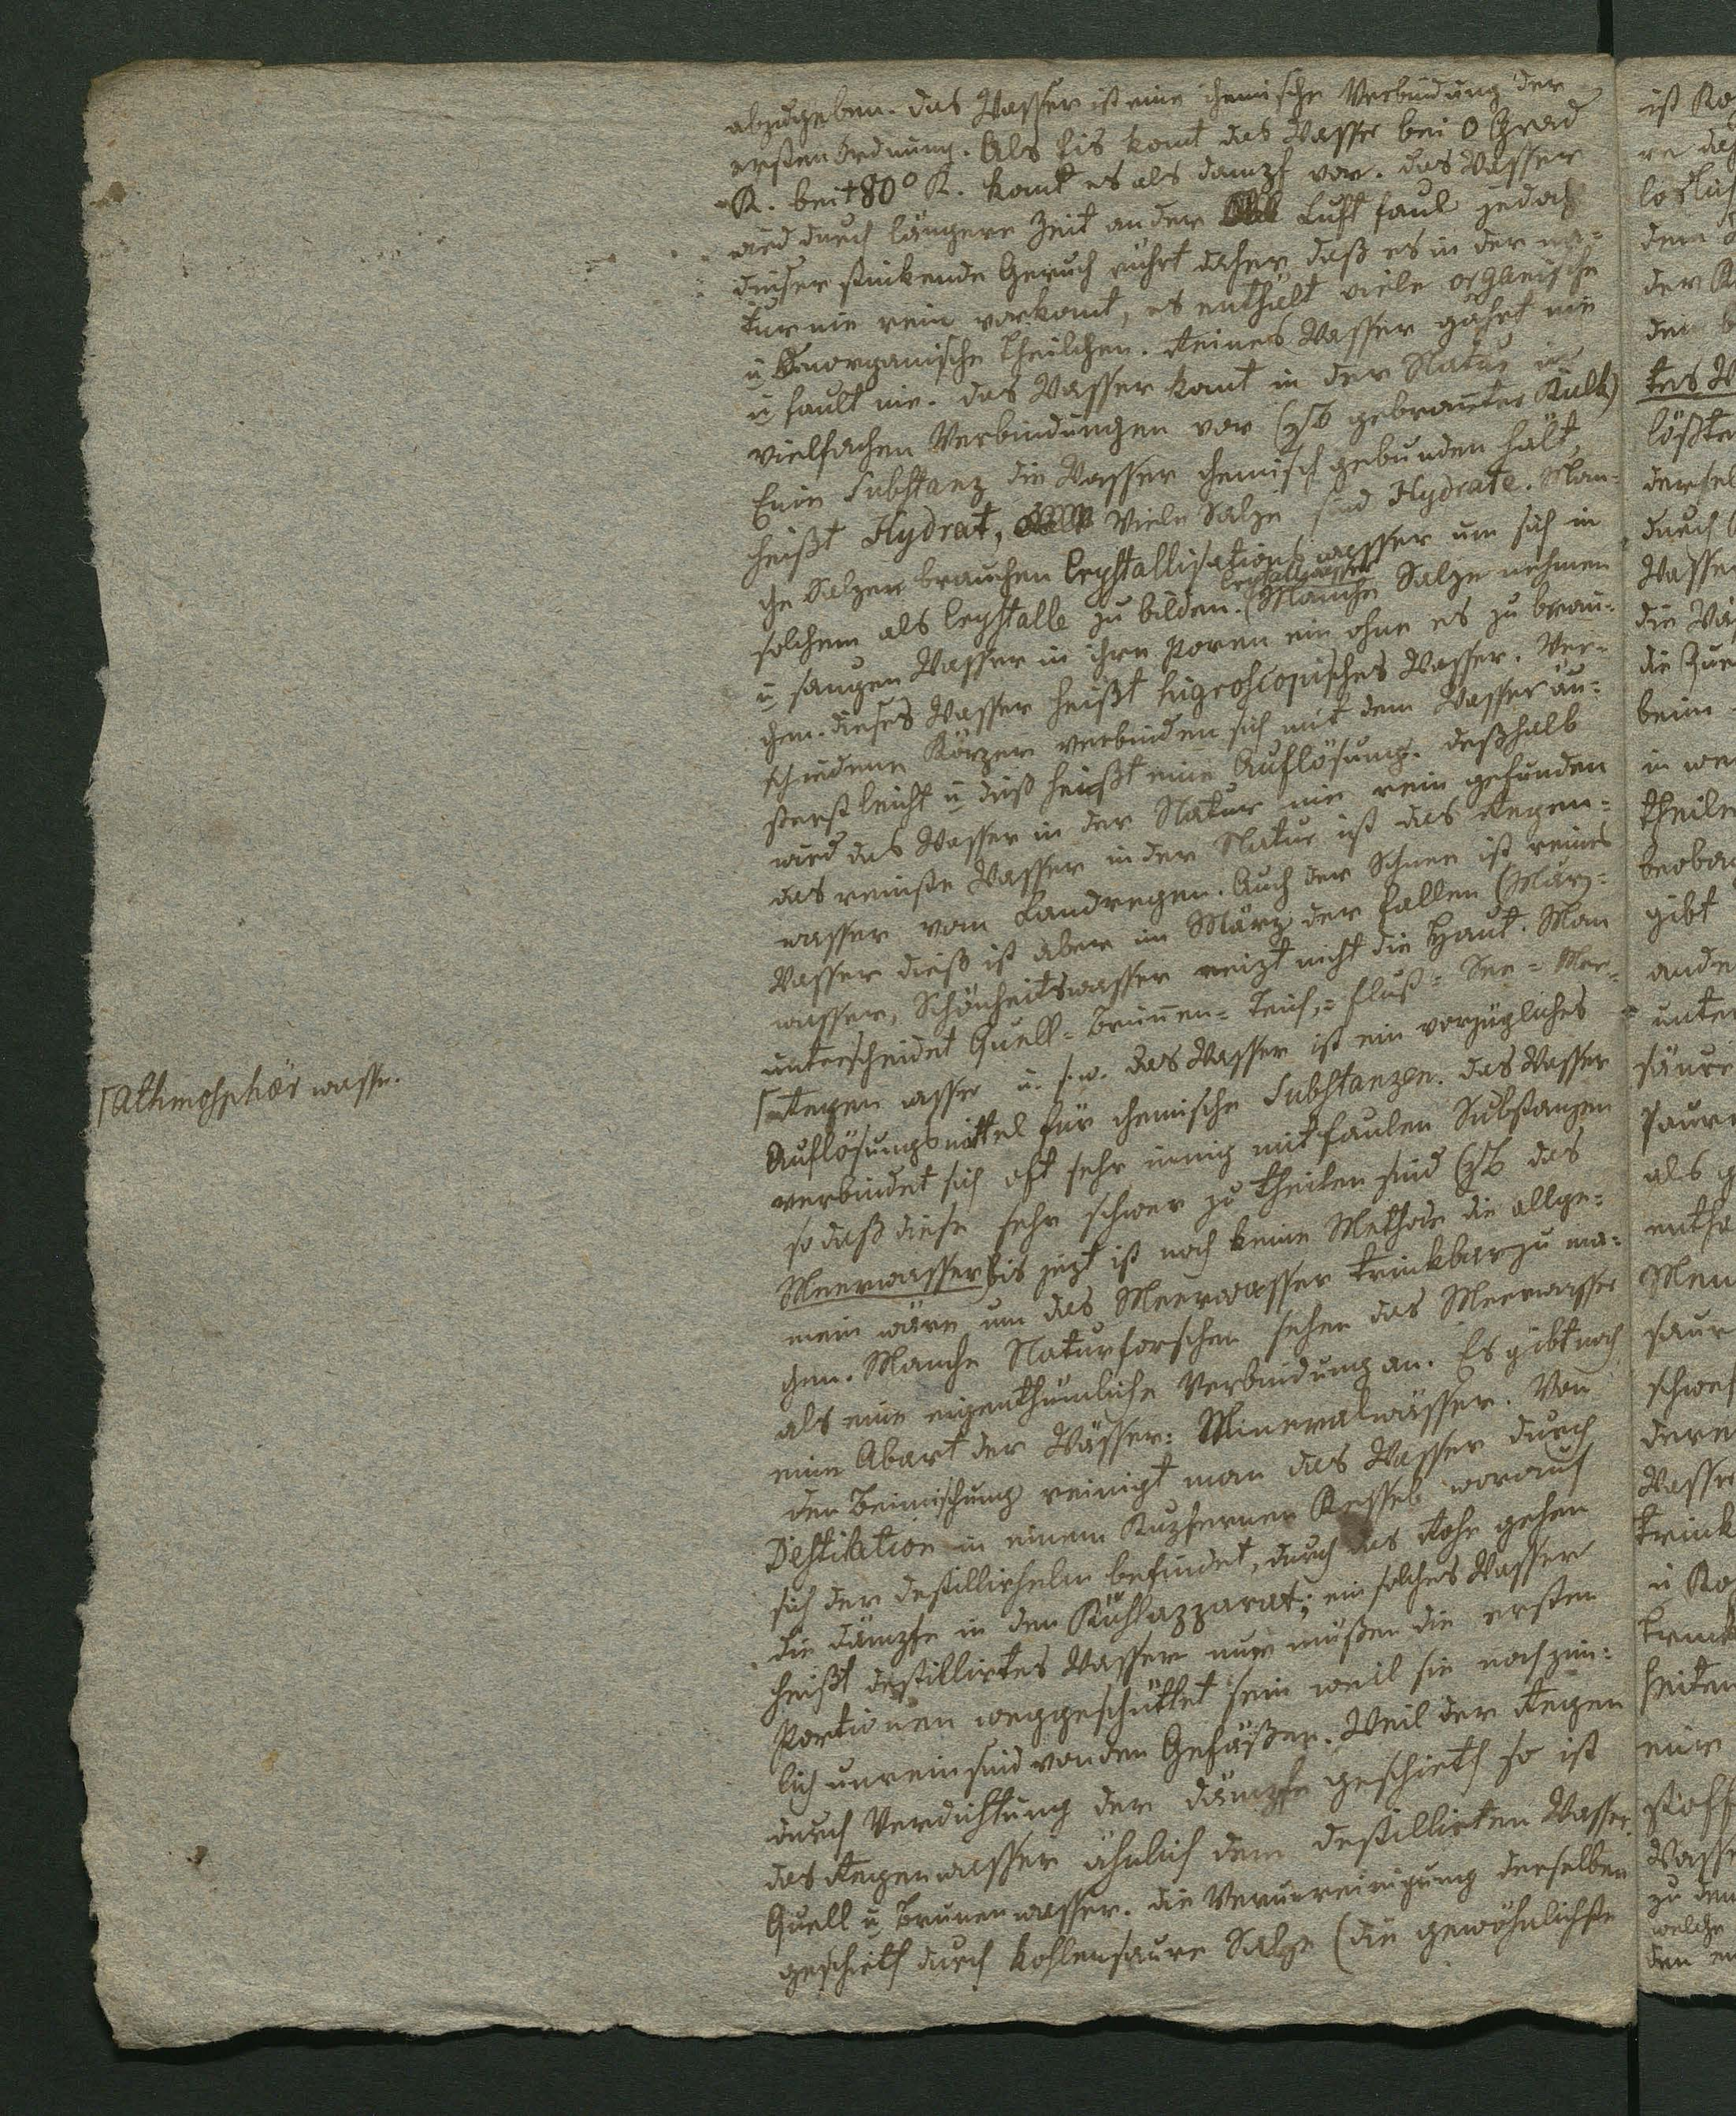 abzugeben. das Wasser ist eine chemische Verbindung der
ersten Ordnung. Als Eis komt das Wasser bei 0 Grad
R. bei +80° R. komt es als Dampf vor. das Wasser
wird durch längere Zeit an der Luft faul jedoch
dieser stinkende Geruch rührt daher, daß es in der na-
tur nie rein vorkomt, es enthält viele organische
u anorganische Theilchen. Reines Wasser gährt nie
u fault nie. das Wasser komt in der Natur in
vielfachen Verbindungen vor (zB gebranter Kalk)
Eine Substanz die Wasser chemisch gebunden hält,
heißt Hydrat, Viele Salze sind Hydrate. Man-
che Salzer brauchen Crystallisationswasser um sich in
Crystallwasser
solchem als Crystalle zu bilden. (Manche Salze nehmen
u saugen Wasser in ihre Poren ein ohne es zu brau-
chen. dieses Wasser heißt higroscopisches Wasser. Ver-
schiedene Körper verbinden sich mit dem Wasser äu-
ßerst leicht u dieß heißt eine Auflösung. deßhalb
wird das Wasser in der Natur nie rein gefunden
das reinste Wasser in der Natur ist das Regen-
wasser vom Landregen. Auch der Schnee ist reines
Wasser dieß ist aber im März der fallen (März-
wasser, Schönheitswasser reizt nicht die Haut. Man
unterscheidet Quell- Brunen- Teich,- Fluß- See- Mee-
⌈Regen wasser u. s. w. das Wasser ist ein vorzügliches
⌈Athmosphär wasse.
Auflösungsmittel für chemische Substanzen. das Wasser
verbindet sich oft sehr innig mit faulen Substanzen
so daß diese sehr schwer zu theilen sind (zB das
Meerwasser) bis jezt ist noch keine Methode die allge-
mein wäre um das Meerwasser trinkbar zu ma-
chen. Manche Naturforscher sehen das Meerwasser
als eine eigenthümliche Verbindung an. Es gibt noch
eine Abart der Wässer: Mineralwässer. Von
der Beimischung reinigt man das Wasser durch
Destilation in einem Kupfernen Kessel worauf
sich der destillirhelm befindet, durch das Rohr gehen
die dämpfe in den Kühlapparat; ein solches Wasser
heißt destillirtes Wasser nur müßen die ersten
Portionen weggeschüttet sein weil sie noch zim-
lich unrein sind von den Gefäßen. Weil der Regen
durch Verdichtung der dämpfe geschieth so ist
das Regenwasser ähnlich dem destillirten Wasser.
Quell u Brunenwasser. die Verunreinigung derselben
geschieth durch kohlensaure Salze (die gewöhnlichste